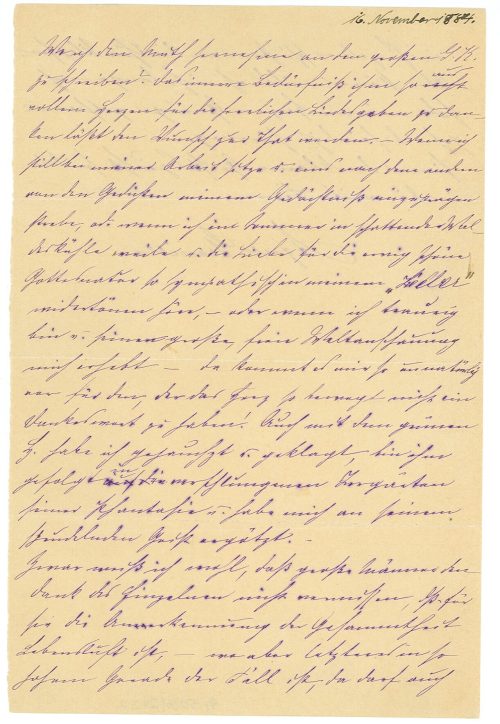 16. November 1884.
Wo ich den Muth hernehme an den großen G. K.
zu schreiben? Das innere Bedürfniß ihm so recht aus
vollem Herzen für die herrlichen Liedesgaben zu dan-
ken läßt den Wunsch zur That werden. — Wenn ich
still bei meiner Arbeit sitze u. eins nach dem andern
von den Gedichten meinem Gedächtniß einzuprägen
strebe, od. wenn ich im Sommer in schattender Wal-
deskühle weile u. die Liebe für die ewig schöne
Gottesnatur so sympathisch in meinem „Keller"
wiedertönen höre, — oder wenn ich traurig
bin u. seine große, freie Weltanschauung
mich erhebt — da kommt es mir so unnatürlich
vor für den, der das Herz so bewegt nicht ein
Dankeswort zu haben! Auch mit dem grünen
H. habe ich gejauchzt u. geklagt, bin ihm
gefolgt in die verschlungenen Irrgärten
seiner Phantasie u. habe mich an seinem
sprudelnden Geist ergötzt. —
Zwar weiß ich wohl, daß große Männer den
Dank des Einzelnen nicht vermissen, ist für
sie die Anerkennung der Gesammtheit
Lebensluft ist, — wo aber letzteres in so
hohem Grade der Fall ist, da darf auch